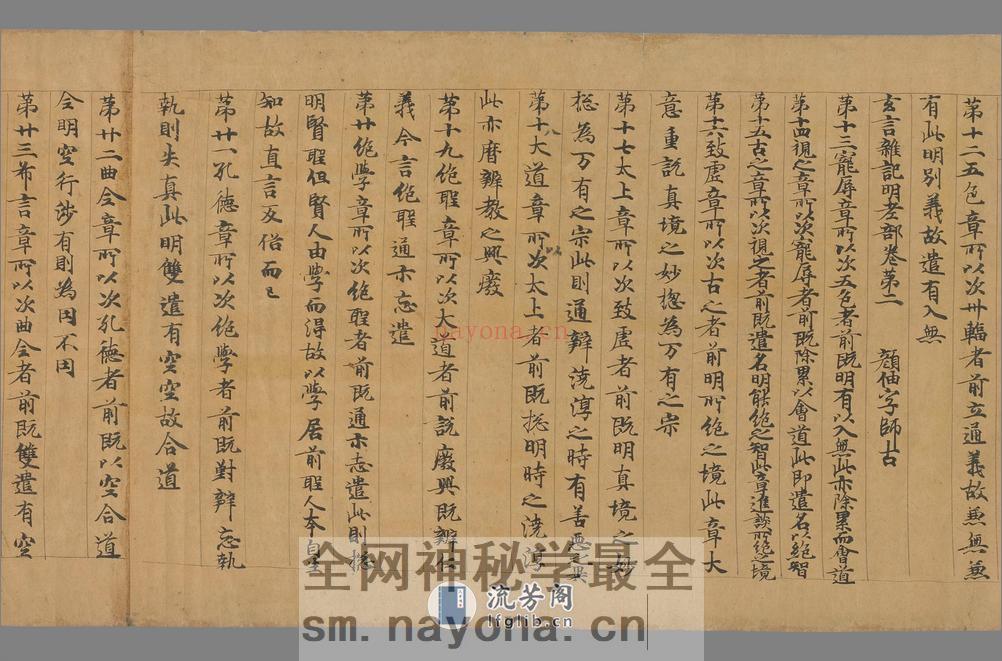 第十二五色章所以次卅輻者前立通義故兼無兼
有此明別義故遣有入無
玄言雜記明老部卷第二 顏伷字師古
第十三寵辱章所以次五色者前既明有以入無此亦除累而會道
第十四視之章所以次寵辱者前既除累以會道此即遣名以絕智
第十五古之章所以次視之者前既遣名明能絕之智此章進談所絕之境
第十六致虛章所以次古之者前明所絕之境此章大
意重詃真境之妙揔為万有之宗
第十七太上章所以次致虛者前既明真境之妙
揔為万有之宗此則通辯澆淳之時有善惡果
第十八大道章所以次太上者前既揔明時之澆淳
此亦曆辯教之興廢
第十九絕聖章所以次大道者前說廢興既辯仁
義今言絕聖通示忘遣
第廿絕學章所以次絕聖者前既通示志遣此則揔
明賢聖但賢人由學而得故以學居前聖人本自生
知故直言及俗而已
第廿一孔德章所以次絕學者前既對辯忘執
執則失真此明雙遣有空空故合道
第廿二曲全章所以次孔德者前既以空合道
今明空行涉有則為因不因
第廿三希言章所以次曲全者前既雙遣有空
nayona.cn
全网神秘学最全
流芳阁
lfglib.cn
sm.nayona.cn